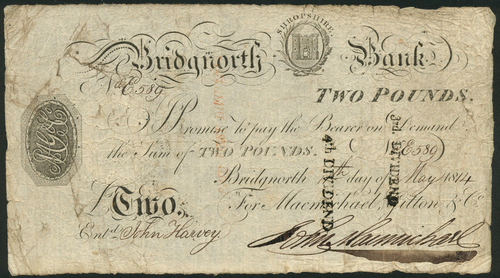 SHROPSHIRE
Bridgnorth Bank
TWO POUNDS.
I Promise to pay the Bearer on Demand
the Sum of TWO POUNDS.
Bridgnorth day of May 1814
For Macmichael Vitton & Co.
£Two.
Entd. John Harvey
John Macmichael
3rd. DIVIDEND
4th DIVIDEND